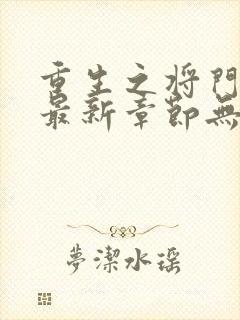 重生之将門
最新章節無
夢潔水瑶